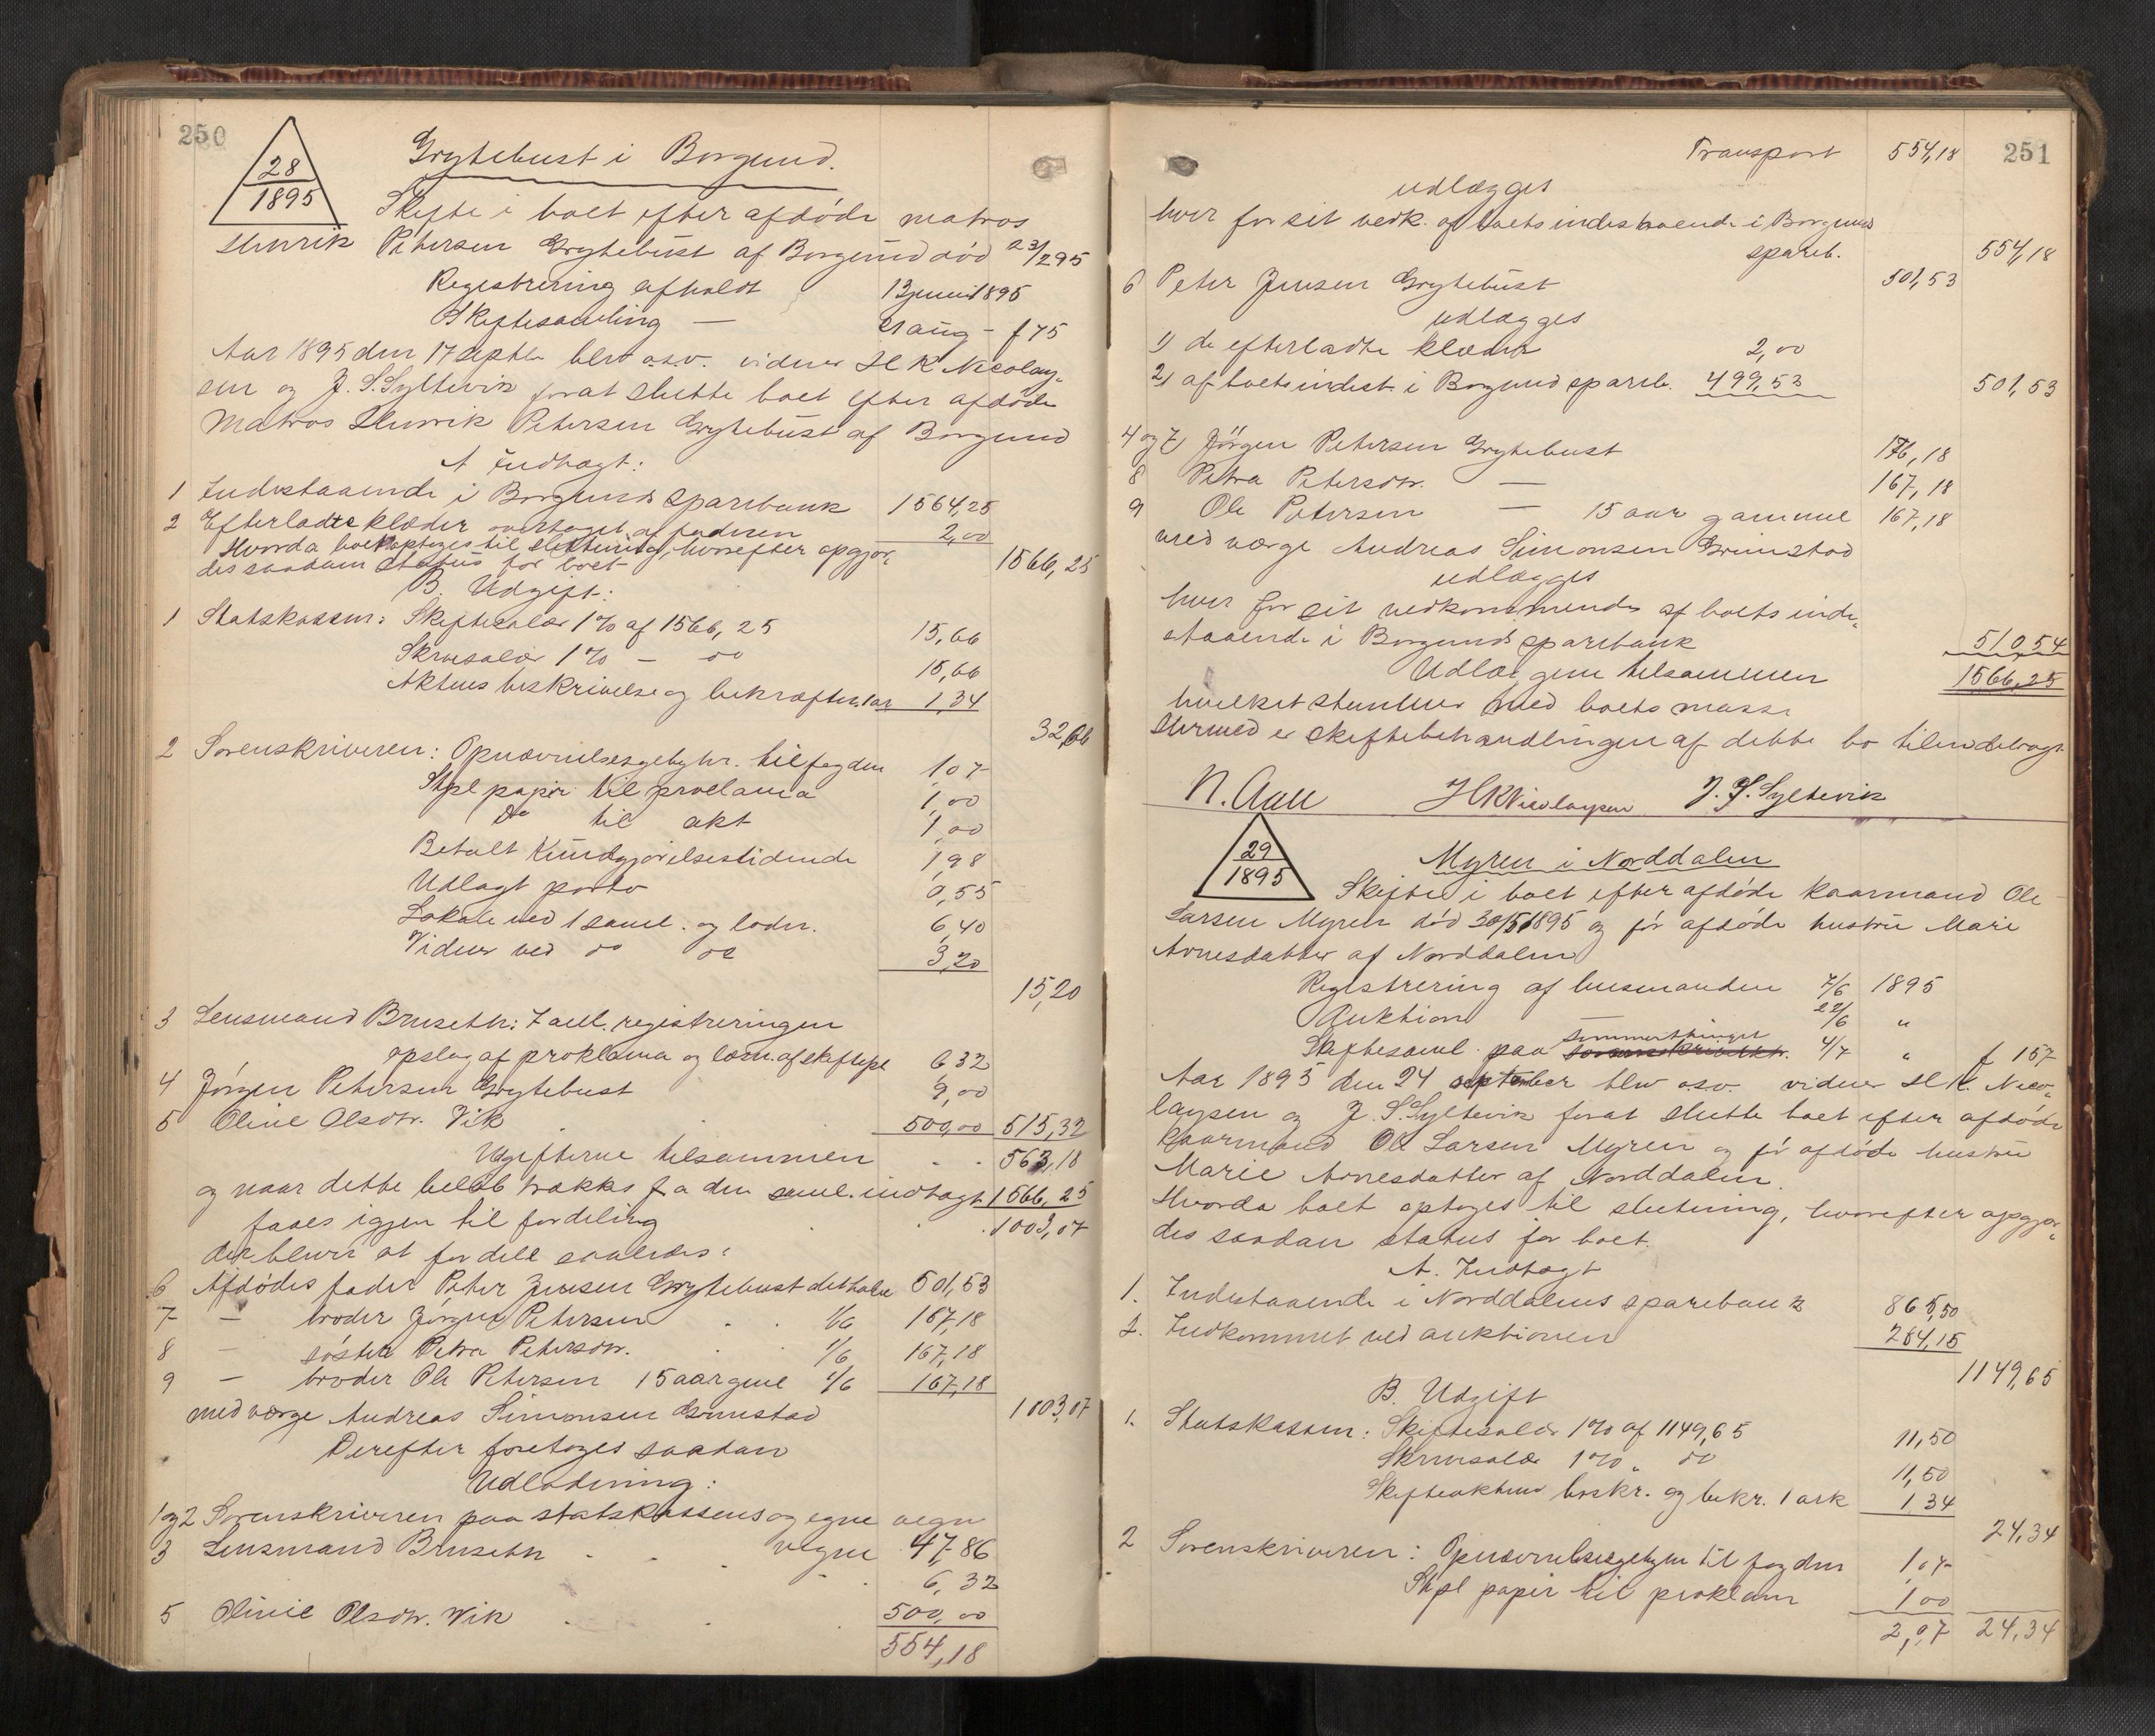 250
28
1895
Grytebust i Borgund.
Skifte i boet efter afdøde matros
Henrik Petersen Grytebust af Borgund død 23/2 95
Registrering afholdt 13 juni 1895
Skiftesamling — 21 aug - f 75
Aar 1895 den 17 septbr blev o.s.v. vidner H K Nicolay-
sen og J. S. Syltevik forat slutte boet efter afdøde
Matros Henrik Petersen Grytebust af Borgund
A Indtægt:
1 Indestaaende i Borgunds Sparebank 1564,25
2 Efterladte klæder overtaget af faderen 2,00
Hvorda boet optoges til sluttening, hvorefter opgjor-
des saadan status for boet 1566,25
B. Udgift:
1 Statskassen: Skiftesalær 1% af 1566,25 15,66
Skrivesalær 1% — do 15,66
Aktens beskrivelse og bekræftn. 1 ar 1,34
32,66
2 Sorenskriveren: Opnævnelsesgebyhr. til fogden 1,07
Stpl papir til proclama 1,00
Do til akt 1,00
Betalt Kundgjørelsestidende 1,98
Udlagt porto 0,55
Lokale ved 1 saml. og lodn. 6,40
Vidner ved do do 3,20
15,20
3 Lensmand Bruseth: I anl. registreringen
opslag af proklama og læsn. af skiftepl 6,32
4 Jørgen Petersen Grytebust 9,00
5 Oline Olsdtr. Vik 500,00 515,32
Udgifterne tilsammen . . 563,18
og naar dette beløb trækks fra den saml. indtægt 1566,25
faaes igjen til fordeling . . 1003,07
der blever at fordele saaledes:
6 Afdødes fader Peter Jensen Grytebust det halve 501,53
7 — broder Jørgen Petersen . . 1/6 167,18
8 — søster Petra Petersdtr. . . 1/6 167,18
9 — broder Ole Petersen 15 aar gml 1/6 167,18
med værge Andreas Simonsen Grimstad 1003,07
Derefter foretoges saadan
Udlodning:
1 og 2 Sorenskriveren paa statskassens og egne vegn
vegne 47,86
3 Lensmand Brusethn . . . . 6,32
5 Olinie Olsdtr. Vik . . . 500,00
554,18
251
Transport 554,18
udlægges
hver for sit vedk. af boets indestaaende i Borgunds
spareb. 554,18
6 Peter Jensen Grytebust 501,53
udlægges
1) de efterladte klæder 2,00
2) af boets indest. i Borgund spareb. 499,53 501,53
4 og 7) Jörgen Petersen Grytebust 176,18
8 Petra Petersdtr. — 167,18
9 Ole Petersen — 15 aar gammel 167,18
med værge Andreas Simonsen Grimstad
udlægges
hver for sit vedkommende af boets inde-
staaende i Borgunds sparebank 510,54
Udlæggene tilsammen 1566,25
hvilket stemmer med boets masse
Hermed er skiftebehandlingen af dette bo tilendebragt
N. Aall HKNicolaysen J. S. Syltevik
29
1895
Myren i Norddalen
Skifte i boet efter afdøde kaarmand Ole
Larsen Myren død 30/5 1895 og før afdøde hustru Mari
Arnesdatter af Norddalen
Registrering af lensmanden 7/6 1895
Auktion — 22/6 "
sommerthinget
Skiftesaml. paa 4/7 " f 157
Aar 1895 den 24 september blev o.s.v. vidner H K. Nico-
laysen og J. S. Syltevik forat slutte boet efter afdøde
kaarmand Ole Larsen Myren og før afdøde hustru
Marie Arnesdatter af Norddalen.
Hvorda boet optoges til slutning, hvorefter opgjor-
des saadan status for boet.
A. Indtægt
1. Indestaaende i Norddalens sparebank 865,50
2. Indkommet ved auktionen 284,15
1149,65
B. Udgift
1. Statskassen: Skiftesalær 1% af 1149,65 11,50
Skrivesalær 1% " do 11,50
Skifteaktens beskr. og bekr. 1 ark 1,34
24,34
2 Sorenskriveren: Opnævnelsesgebyr til fogden 1,07
Stpl papir til proklam 1,00
2,07 24,34